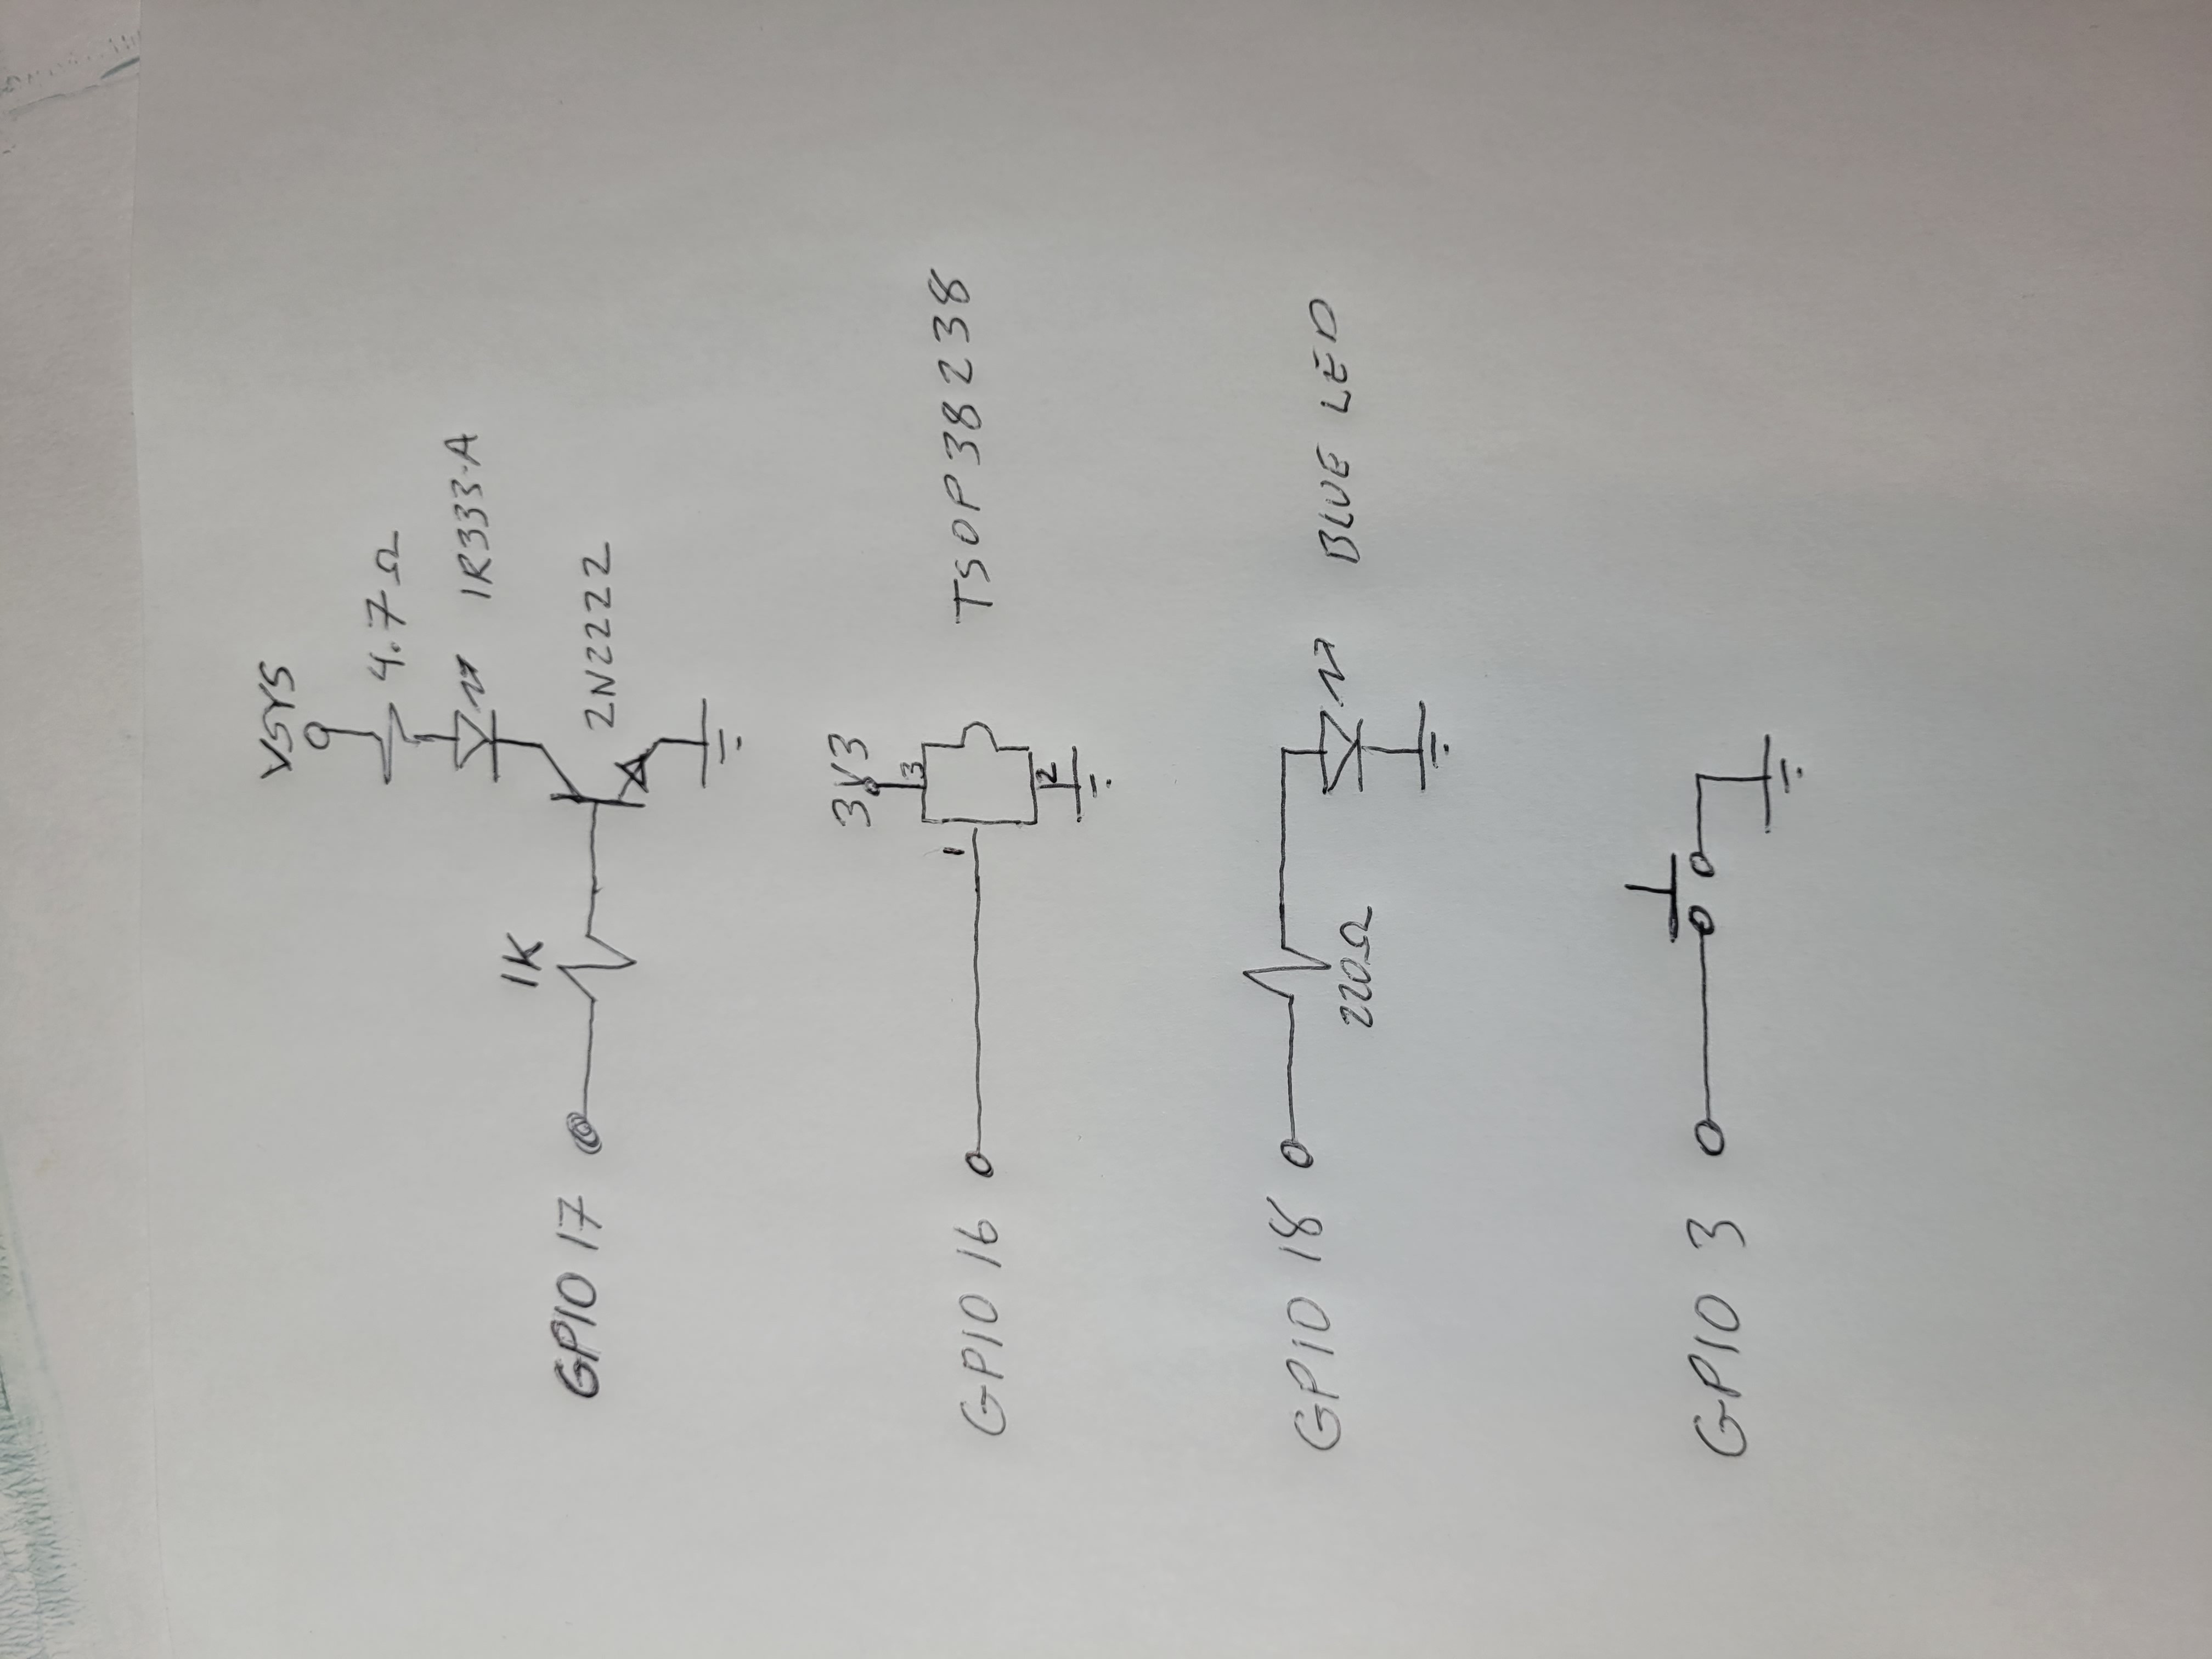 VSYS
4.7Ω
IR333-A
1K
GPIO 17
2N2222
3V3
3
1
GPIO 16
TSOP38238
2
GPIO 18
220Ω
BLUE LED
GPIO 3